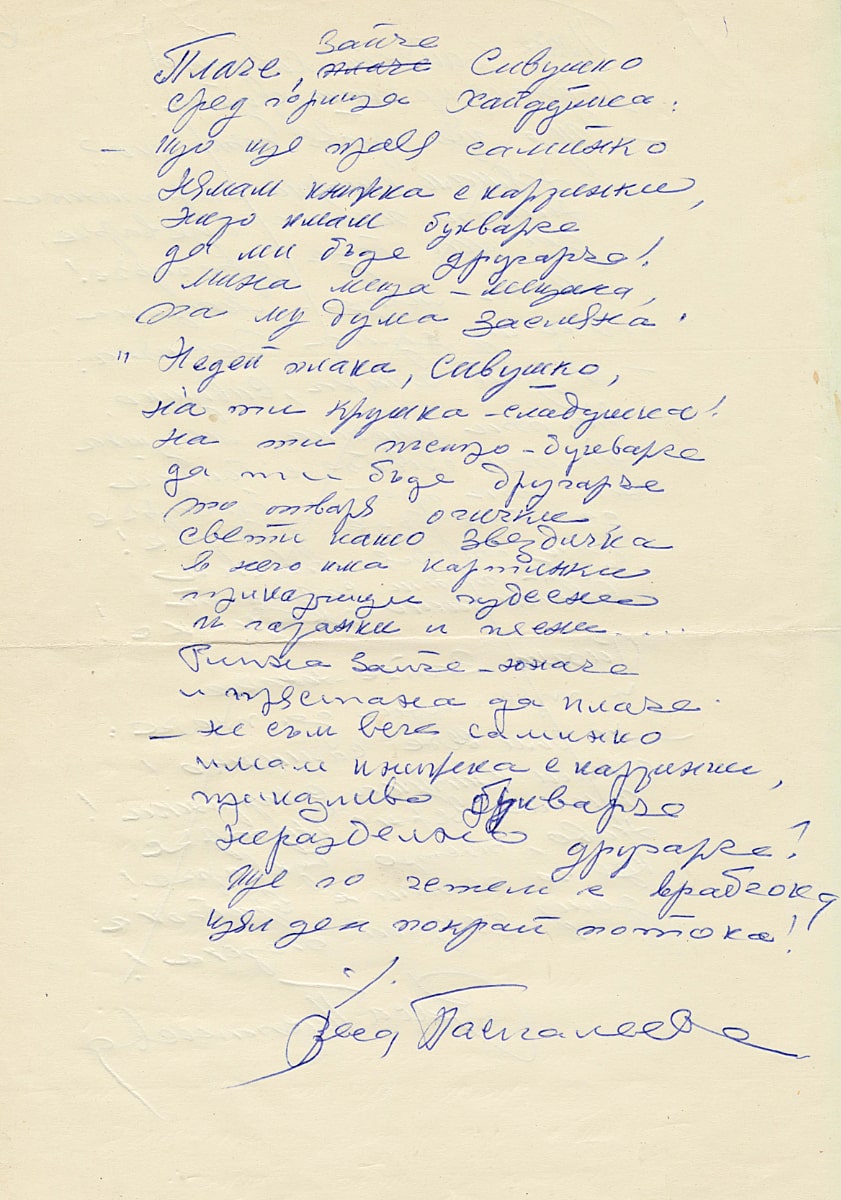 Зайче
Плаче, плаче Сивушко
сред горица Хайдушка.
— що ще правя самичко
Нямам книжка с картинки,
нито имам букварче
да ми бъде другарче!
мина меца - мецана,
та му дума засмяна.
" Недей плака, Сивушко,
на ти крушка - сладушка!
на ти пъстро - букварче
да ти бъде другарче
то отваря очички
свети като звездичка
в него има картинки
приказчици чудесни
и гатанки и песни....
Рипна Зайче - юначе
и престана да плаче.
— не съм вече самичко
имам книжка с картинки,
приказливо букварче
неразделно другарче!
ще го четем с врабчока
цял ден покрай потока!
Веса Паспалеева